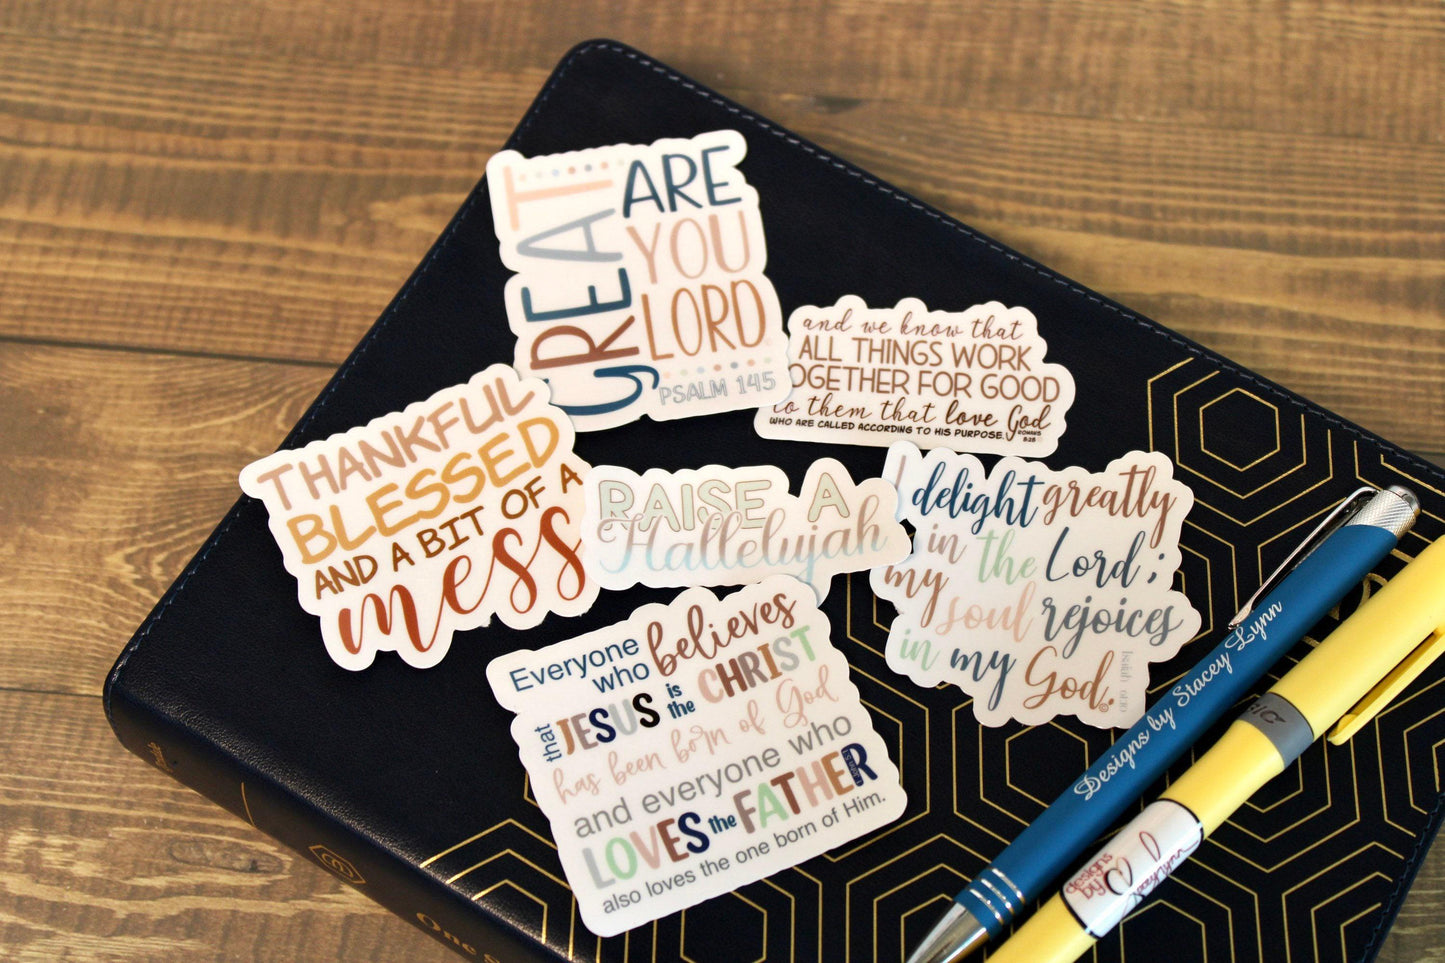 GREAT
ARE
YOU
LORD
PSALM 145
and we know that
ALL THINGS WORK
OGETHER FOR GOOD
to them that love God
WHO ARE CALLED ACCORDING TO HIS PURPOSE.
ROMANS
8:28
THANKFUL
BLESSED
AND A BIT OF A
mess
RAISE A
Hallelujah
I delight greatly
in the Lord;
my soul rejoices
in my God.
Isaiah 61:10
Everyone
who believes
that JESUS is the CHRIST
has been born of God
and everyone who
LOVES the FATHER
1 JOHN 5:1
also loves the one born of Him.
Designs by Stacey Lynn
designs by
One